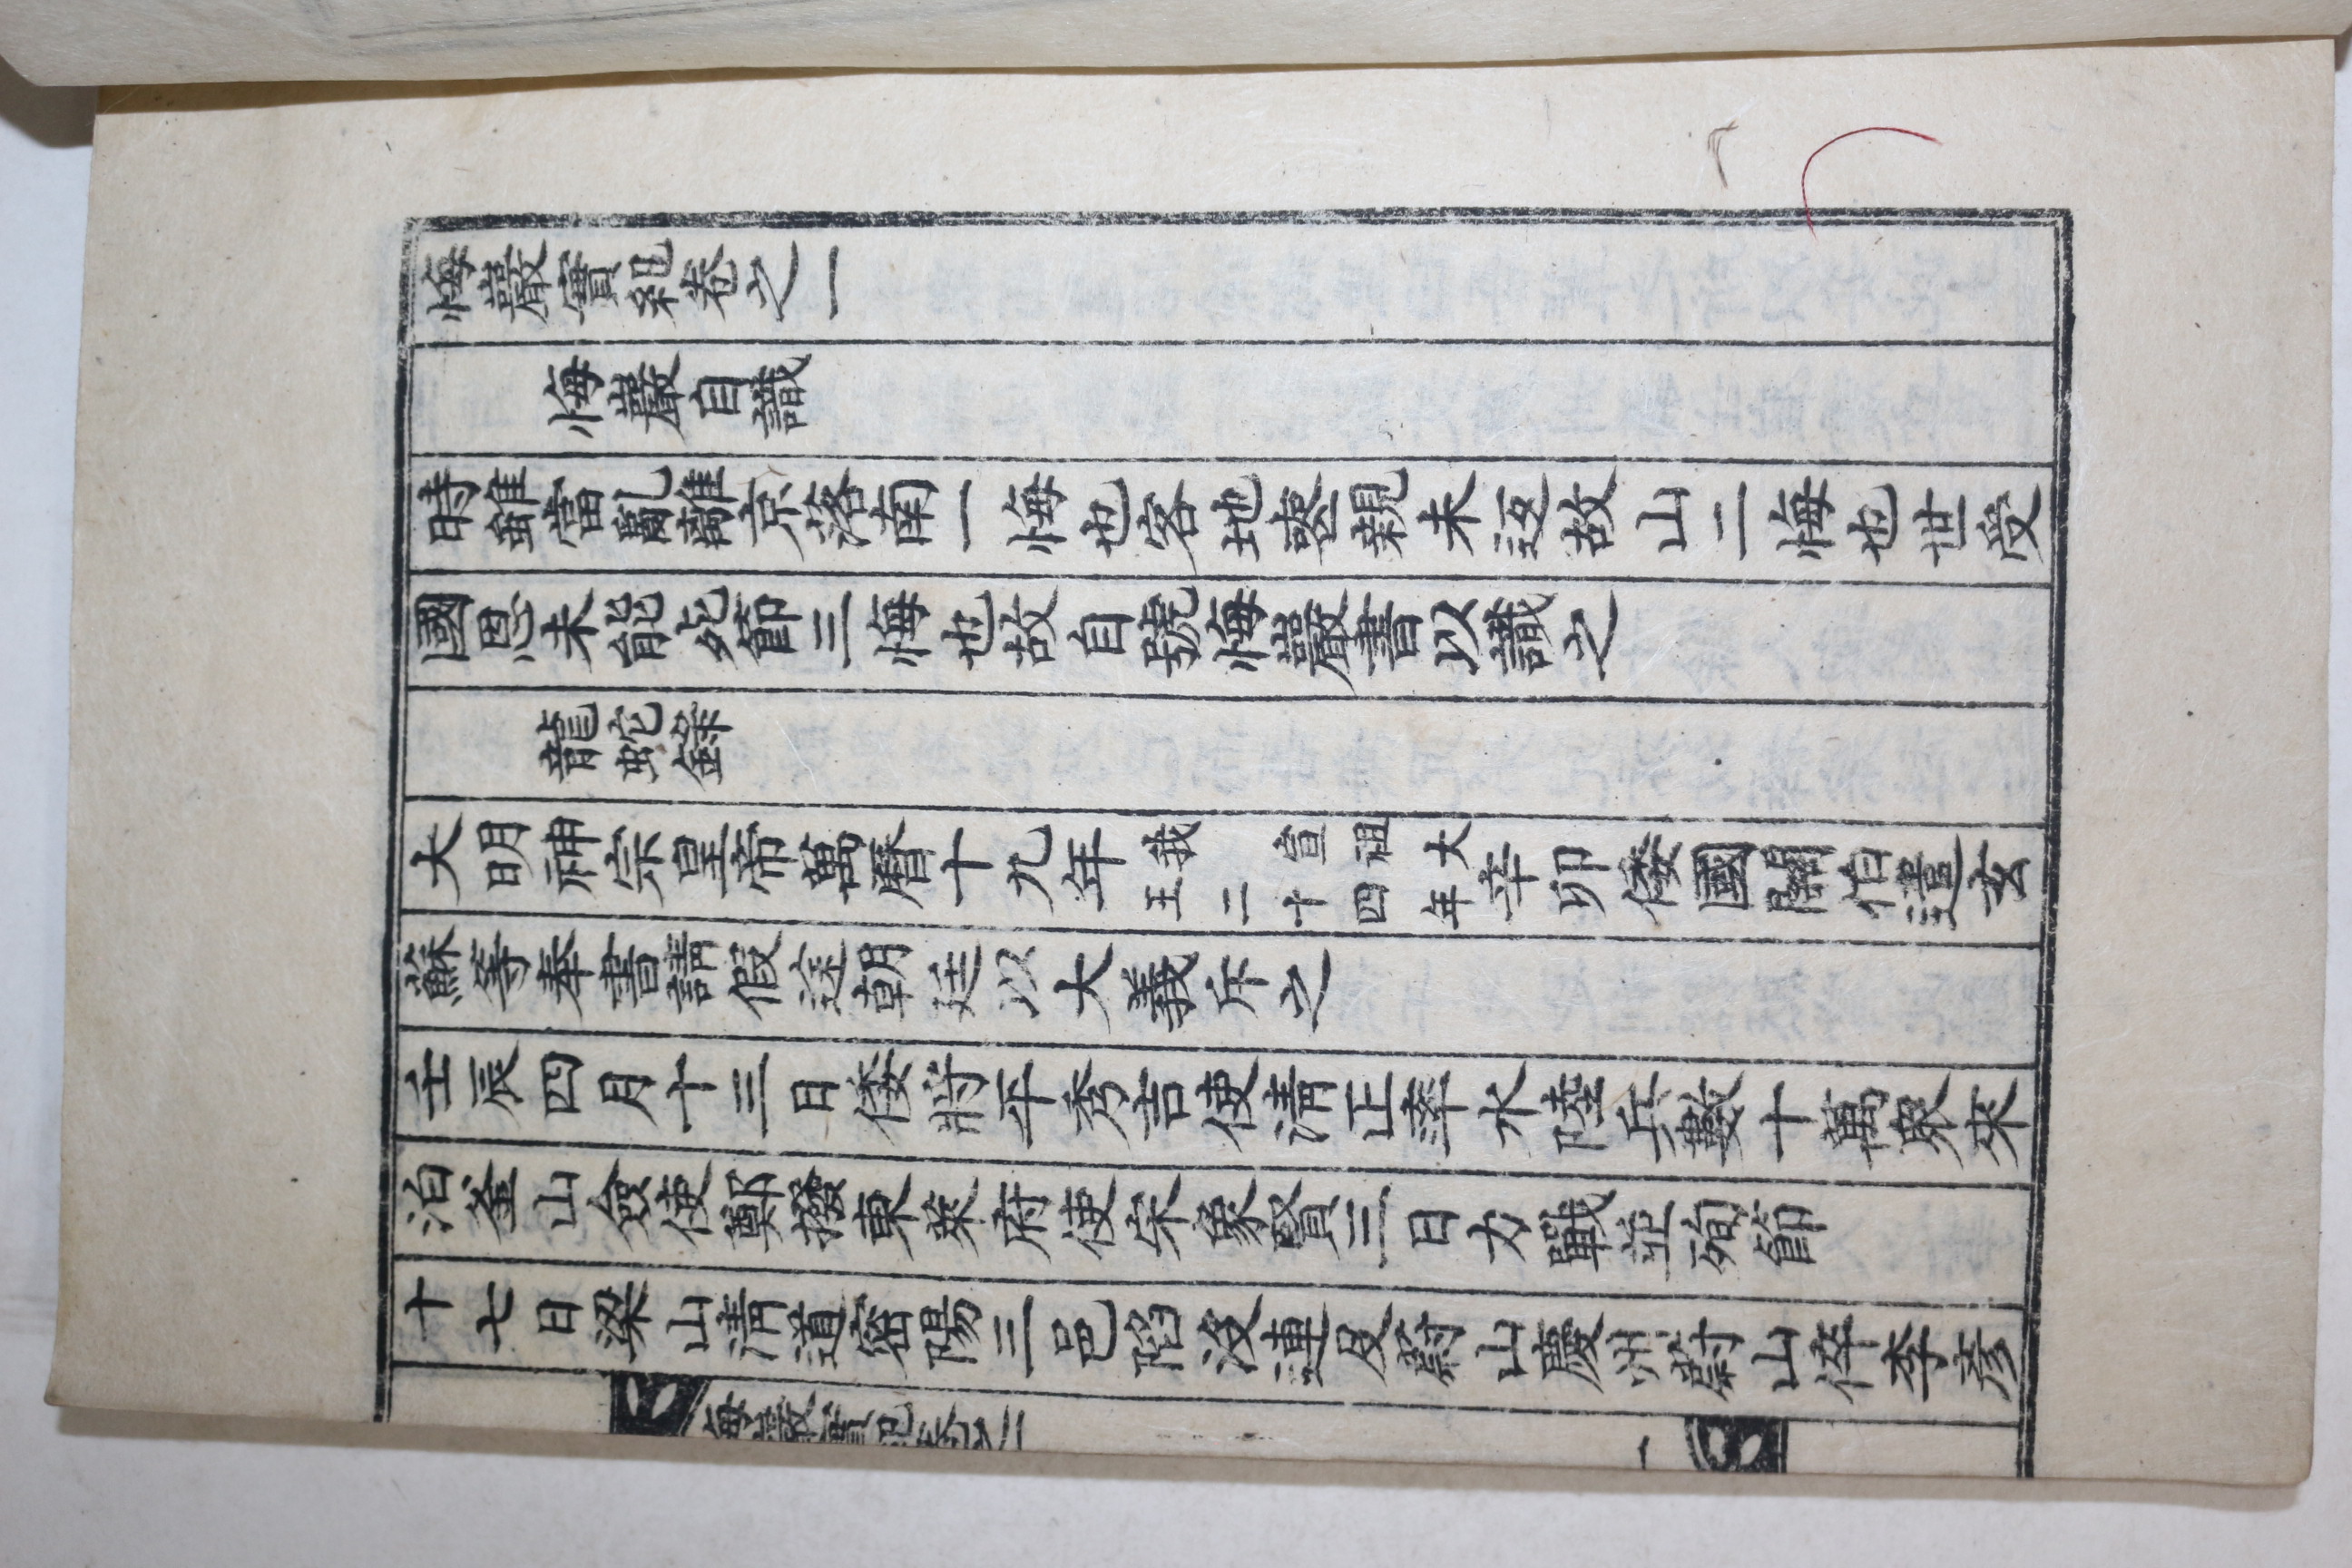 悔巖實紀卷之一
悔巖自識
時雖當亂離京落南一悔也客地喪親未返故山二悔也世受
國恩未能死節三悔也故自號悔巖書以識之
龍蛇錄
大明神宗皇帝萬曆十九年我宣祖大王二十四年辛卯倭國關伯遣玄
蘇等奉書請假途朝廷以大義斥之
壬辰四月十三日倭將平秀吉使淸正率水陸兵數十萬衆來
泊釜山僉使鄭撥東萊府使宋象賢三日力戰並殉節
十七日梁山淸道密陽三邑陷沒連及蔚山慶州蔚山倅李彦
悔巖實紀卷之一
一